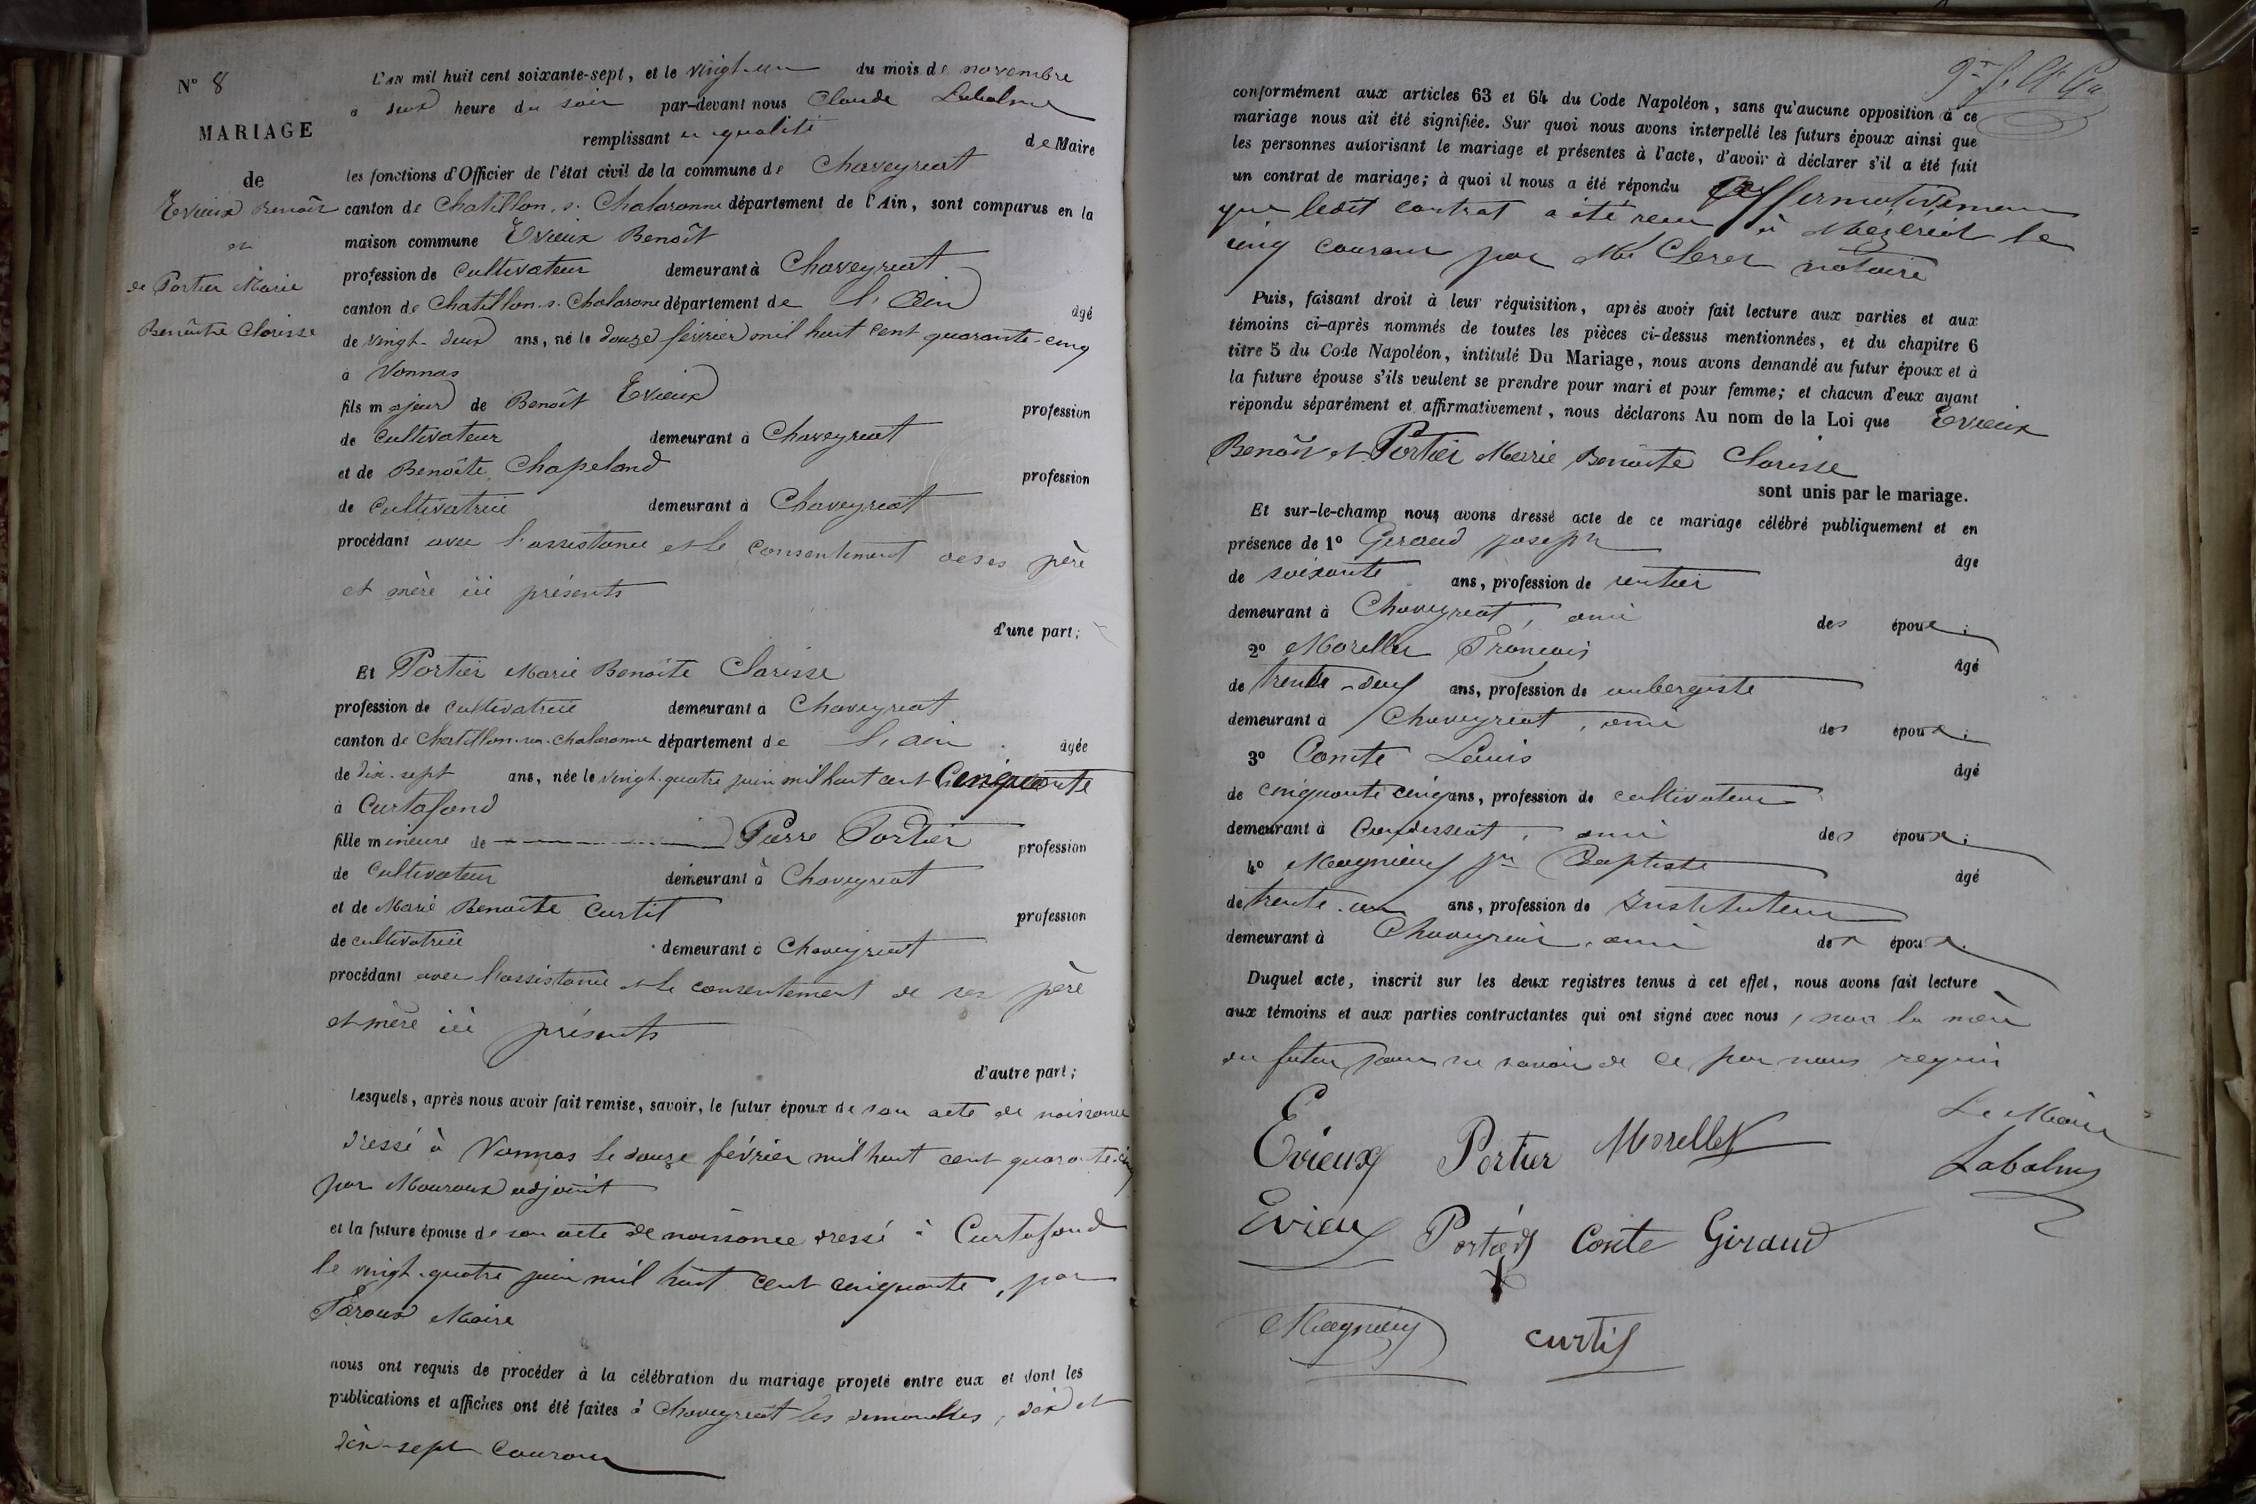 N° 8
MARIAGE
de
Evieux Benoît
et
de Portier Marie
Benoîte Clarisse
L'AN mil huit cent soixante-sept, et le vingt-un du mois de novembre
à deux heure du soir par-devant nous Claude Labalme
remplissant en qualité de Maire
les fonctions d'Officier de l'état civil de la commune de Chaveyriat
canton de Chatillon. s. Chalaronne département de l'Ain, sont comparus en la
maison commune Evieux Benoît
profession de cultivateur demeurant à Chaveyriat
canton de Chatillon. s. Chalarone département de l'Ain âgé
de vingt-deux ans, né le douze février mil huit cent quarante-cinq
à Vonnas
fils majeur de Benoît Evieux profession
de cultivateur demeurant à Chaveyriat
et de Benoîte Chapeland profession
de cultivatrice demeurant à Chaveyriat
procédant avec l'assistance et le consentement de ses père
et mère ici présents
d'une part;
Et Portier Marie Benoîte Clarisse
profession de cultivatrice demeurant à Chaveyriat
canton de Chatillon-sur-Chalaronne département de l'ain âgée
de dix-sept ans, née le vingt-quatre juin mil huit cent Cinquante
à Curtafond
fille mineure de Pierre Portier profession
de cultivateur demeurant à Chaveyriat
et de Marie Benoîte Curtil profession
de cultivatrice demeurant à Chaveyriat
procédant avec l'assistance et le consentement de ses père
et mère ici présents
d'autre part;
Lesquels, après nous avoir fait remise, savoir, le futur époux de son acte de naissance
dressé à Vonnas le douze février mil huit cent quarante-cinq
par Mouroux adjoint
et la future épouse de son acte de naissance dressé à Curtafond
le vingt-quatre juin mil huit cent cinquante, par
Maire
nous ont requis de procéder à la célébration du mariage projeté entre eux et dont les
publications et affiches ont été faites à Chaveyriat les dimanches, dix et
dix-sept courant
conformément aux articles 63 et 64 du Code Napoléon, sans qu'aucune opposition à ce
mariage nous ait été signifiée. Sur quoi nous avons interpellé les futurs époux ainsi que
les personnes autorisant le mariage et présentes à l'acte, d'avoir à déclarer s'il a été fait
un contrat de mariage; à quoi il nous a été répondu affirmativement
que ledit contrat a été reçu à Mézériat le
cinq courant par Me Cleret notaire
Puis, faisant droit à leur réquisition, après avoir fait lecture aux parties et aux
témoins ci-après nommés de toutes les pièces ci-dessus mentionnées, et du chapitre 6
titre 5 du Code Napoléon, intitulé Du Mariage, nous avons demandé au futur époux et à
la future épouse s'ils veulent se prendre pour mari et pour femme; et chacun d'eux ayant
répondu séparément et affirmativement, nous déclarons Au nom de la Loi que Evieux
Benoît et Portier Marie Benoîte Clarisse
sont unis par le mariage.
Et sur-le-champ nous avons dressé acte de ce mariage célébré publiquement et en
présence de 1° Geraud joseph âge
de soixante ans, profession de rentier
demeurant à Chaveyriat, ami des époux;
2° Morellet François âgé
de trente-deux ans, profession de aubergiste
demeurant à Chaveyriat, ami des époux;
3° Comte Louis âgé
de cinquante cinq ans, profession de cultivateur
demeurant à Condeissiat, ami des époux;
4° Magnieny jn Baptiste âgé
de trente-un ans, profession de Instituteur
demeurant à Chaveyriat, ami des époux.
Duquel acte, inscrit sur les deux registres tenus à cet effet, nous avons fait lecture
aux témoins et aux parties contractantes qui ont signé avec nous, non la mère
du futur pour ne savoir de ce par nous requis
Le Maire
Evieux Portier Morellet
Labalme
Evieux Portier Conte Giraud
Magnieny Curtil